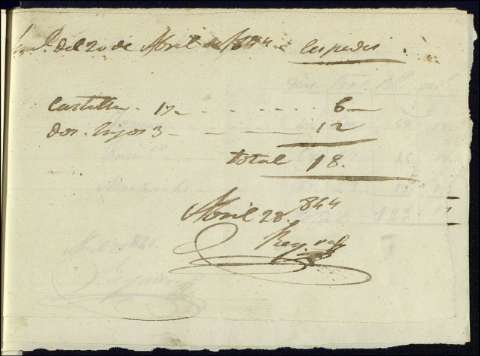 del 20 de Abril de 1844 = Cespedes
Castilla - 17 - - - - 6 -
dos hijos 3 - - - - 12
total 18.
Abril 28. 844